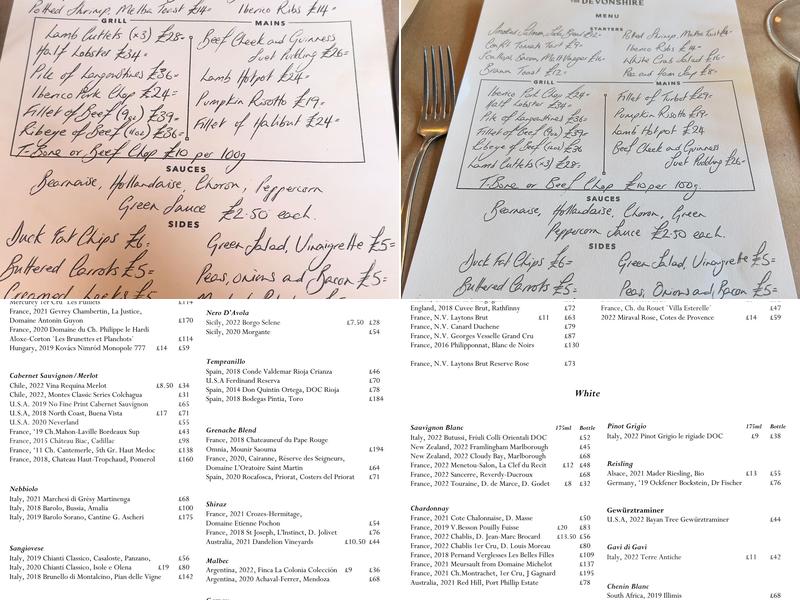 Potted Shrimp, Melba Toast £14= Iberico Ribs £14=
GRILL
MAINS
Lamb Cutlets (x3) £28=
Half Lobster £34=
Pile of Langoustines £36=
Iberico Pork Chop £24=
Fillet of Beef (9oz) £39=
Ribeye of Beef (11oz) £36=
Beef Cheek and Guinness
Suet Pudding £26=
Lamb Hotpot £24=
Pumpkin Risotto £19=
Fillet of Halibut £24=
T-Bone or Beef Chop £10 per 100g
SAUCES
Bearnaise, Hollandaise, Choron, Peppercorn
Green Sauce £2.50 each.
SIDES
Duck Fat Chips £6=
Green Salad, Vinaigrette £5=
Buttered Carrots £5=
Peas, Onions and Bacon £5=
Creamed Leeks £5=
THE DEVONSHIRE
MENU
STARTERS
Confit Tomato Tart £9=
Scallop, Bacon, Malt Vinegar £16=
Brawn Toast £12=
Potted Shrimp, Melba Toast £14=
Iberico Ribs £14=
White Crab Salad £16=
Pea and Ham Soup £8=
GRILL
MAINS
Iberico Pork Chop £24=
Half Lobster £34=
Pile of Langoustines £36
Fillet of Beef (9oz) £39=
Ribeye of Beef (11oz) £36
Lamb Cutlets (x3) £28=
Fillet of Turbot £29=
Pumpkin Risotto £19=
Lamb Hotpot £24
Beef Cheek and Guinness
Suet Pudding £26=
T-Bone or Beef Chop £10 per 100g.
SAUCES
Bearnaise, Hollandaise, Choron, Green
Peppercorn Sauce £2.50 each.
SIDES
Duck Fat Chips £6=
Green Salad, Vinaigrette £5=
Buttered Carrots £5=
Peas, Onions and Bacon £5=
Mercurey 1er Cru 'Les Puillets £114
France, 2021 Gevrey Chambertin, La Justice,
Domaine Antonin Guyon £170
France, 2020 Domaine du Ch. Philippe le Hardi
Aloxe-Corton 'Les Brunettes et Planchots' £114
Hungary, 2019 Kovács Nimród Monopole 777 £14 £59
Cabernet Sauvignon/Merlot
Chile, 2022 Vina Requina Merlot £8.50 £34
Chile, 2022, Montes Classic Series Colchagua £31
U.S.A. 2019 No Fine Print Cabernet Sauvignon £65
U.S.A, 2018 North Coast, Buena Vista £17 £71
U.S.A. 2020 Neverland £55
France, '19 Ch.Mahon-Laville Bordeaux Sup £43
France, 2015 Château Biac, Cadillac £98
France, '11 Ch. Cantemerle, 5th Gr. Haut Medoc £138
France, 2018, Chateau Haut-Tropchaud, Pomerol £160
Nebbiolo
Italy, 2021 Marchesi di Grésy Martinenga £68
Italy, 2018 Barolo, Bussia, Amalia £100
Italy, 2019 Barolo Sorano, Cantine G. Ascheri £175
Sangiovese
Italy, 2019 Chianti Classico, Casaloste, Panzano, £56
Italy, 2020 Chianti Classico, Isole e Olena £19 £80
Italy, 2018 Brunello di Montalcino, Pian delle Vigne £142
Nero D'Avola
Sicily, 2022 Borgo Selene £7.50 £28
Sicily, 2020 Morgante £54
Tempranillo
Spain, 2018 Conde Valdemar Rioja Crianza £46
U.S.A Ferdinand Reserva £70
Spain, 2014 Don Quintin Ortega, DOC Rioja £78
Spain, 2018 Bodegas Pintia, Toro £184
Grenache Blend
France, 2018 Chateauneuf du Pape Rouge
Omnia, Mounir Saouma £194
France, 2020, Cairanne, Réserve des Seigneurs,
Domaine L'Oratoire Saint Martin £64
Spain, 2020 Rocafosca, Priorat, Costers del Priorat £71
Shiraz
France, 2021 Crozes-Hermitage,
Domaine Etienne Pochon £54
France, 2018 St Joseph, L'Instinct, D. Jolivet £76
Australia, 2021 Dandelion Vineyards £10.50 £44
Malbec
Argentina, 2022, Finca La Colonia Colección £9 £36
Argentina, 2020 Achaval-Ferrer, Mendoza £68
England, 2018 Cuvee Brut, Rathfinny £72
France, N.V. Laytons Brut £11 £63
France, N.V. Canard Duchene £79
France, N.V. Georges Vesselle Grand Cru £87
France, 2016 Philipponnat, Blanc de Noirs £130
France, N.V. Laytons Brut Reserve Rose £73
France, Ch. du Rouet 'Villa Esterelle' £47
2022 Miraval Rose, Cotes de Provence £14 £59
White
Sauvignon Blanc 175ml Bottle
Italy, 2022 Butussi, Friuli Colli Orientali DOC £52
New Zealand, 2022 Framlingham Marlborough £45
New Zealand, 2022 Cloudy Bay, Marlborough £68
France, 2022 Menetou-Salon, La Clef du Recit £12 £48
France, 2022 Sancerre, Reverdy-Ducroux £68
France, 2022 Touraine, D. de Marce, D. Godet £8 £32
Chardonnay
France, 2021 Cote Chalonnaise, D. Masse £50
France, 2019 V.Besson Pouilly Fuisse £20 £83
France, 2022 Chablis, D. Jean-Marc Brocard £13.50 £56
France, 2022 Chablis 1er Cru, D. Louis Moreau £80
France, 2018 Pernand Verglesses Les Belles Filles £109
France, 2021 Meursault from Domaine Michelot £137
France, 2021 Ch.Montrachet, 1er Cru, J Gagnard £195
Australia, 2021 Red Hill, Port Phillip Estate £78
Pinot Grigio 175ml Bottle
Italy, 2022 Pinot Grigio le rigiade DOC £9 £38
Reisling
Alsace, 2021 Mader Riesling, Bio £13 £55
Germany, '19 Ockfener Bockstein, Dr Fischer £76
Gewürztraminer
U.S.A, 2022 Bayan Tree Gewürztraminer £44
Gavi di Gavi
Italy, 2022 Terre Antiche £11 £42
Chenin Blanc
South Africa, 2019 Illimis £68